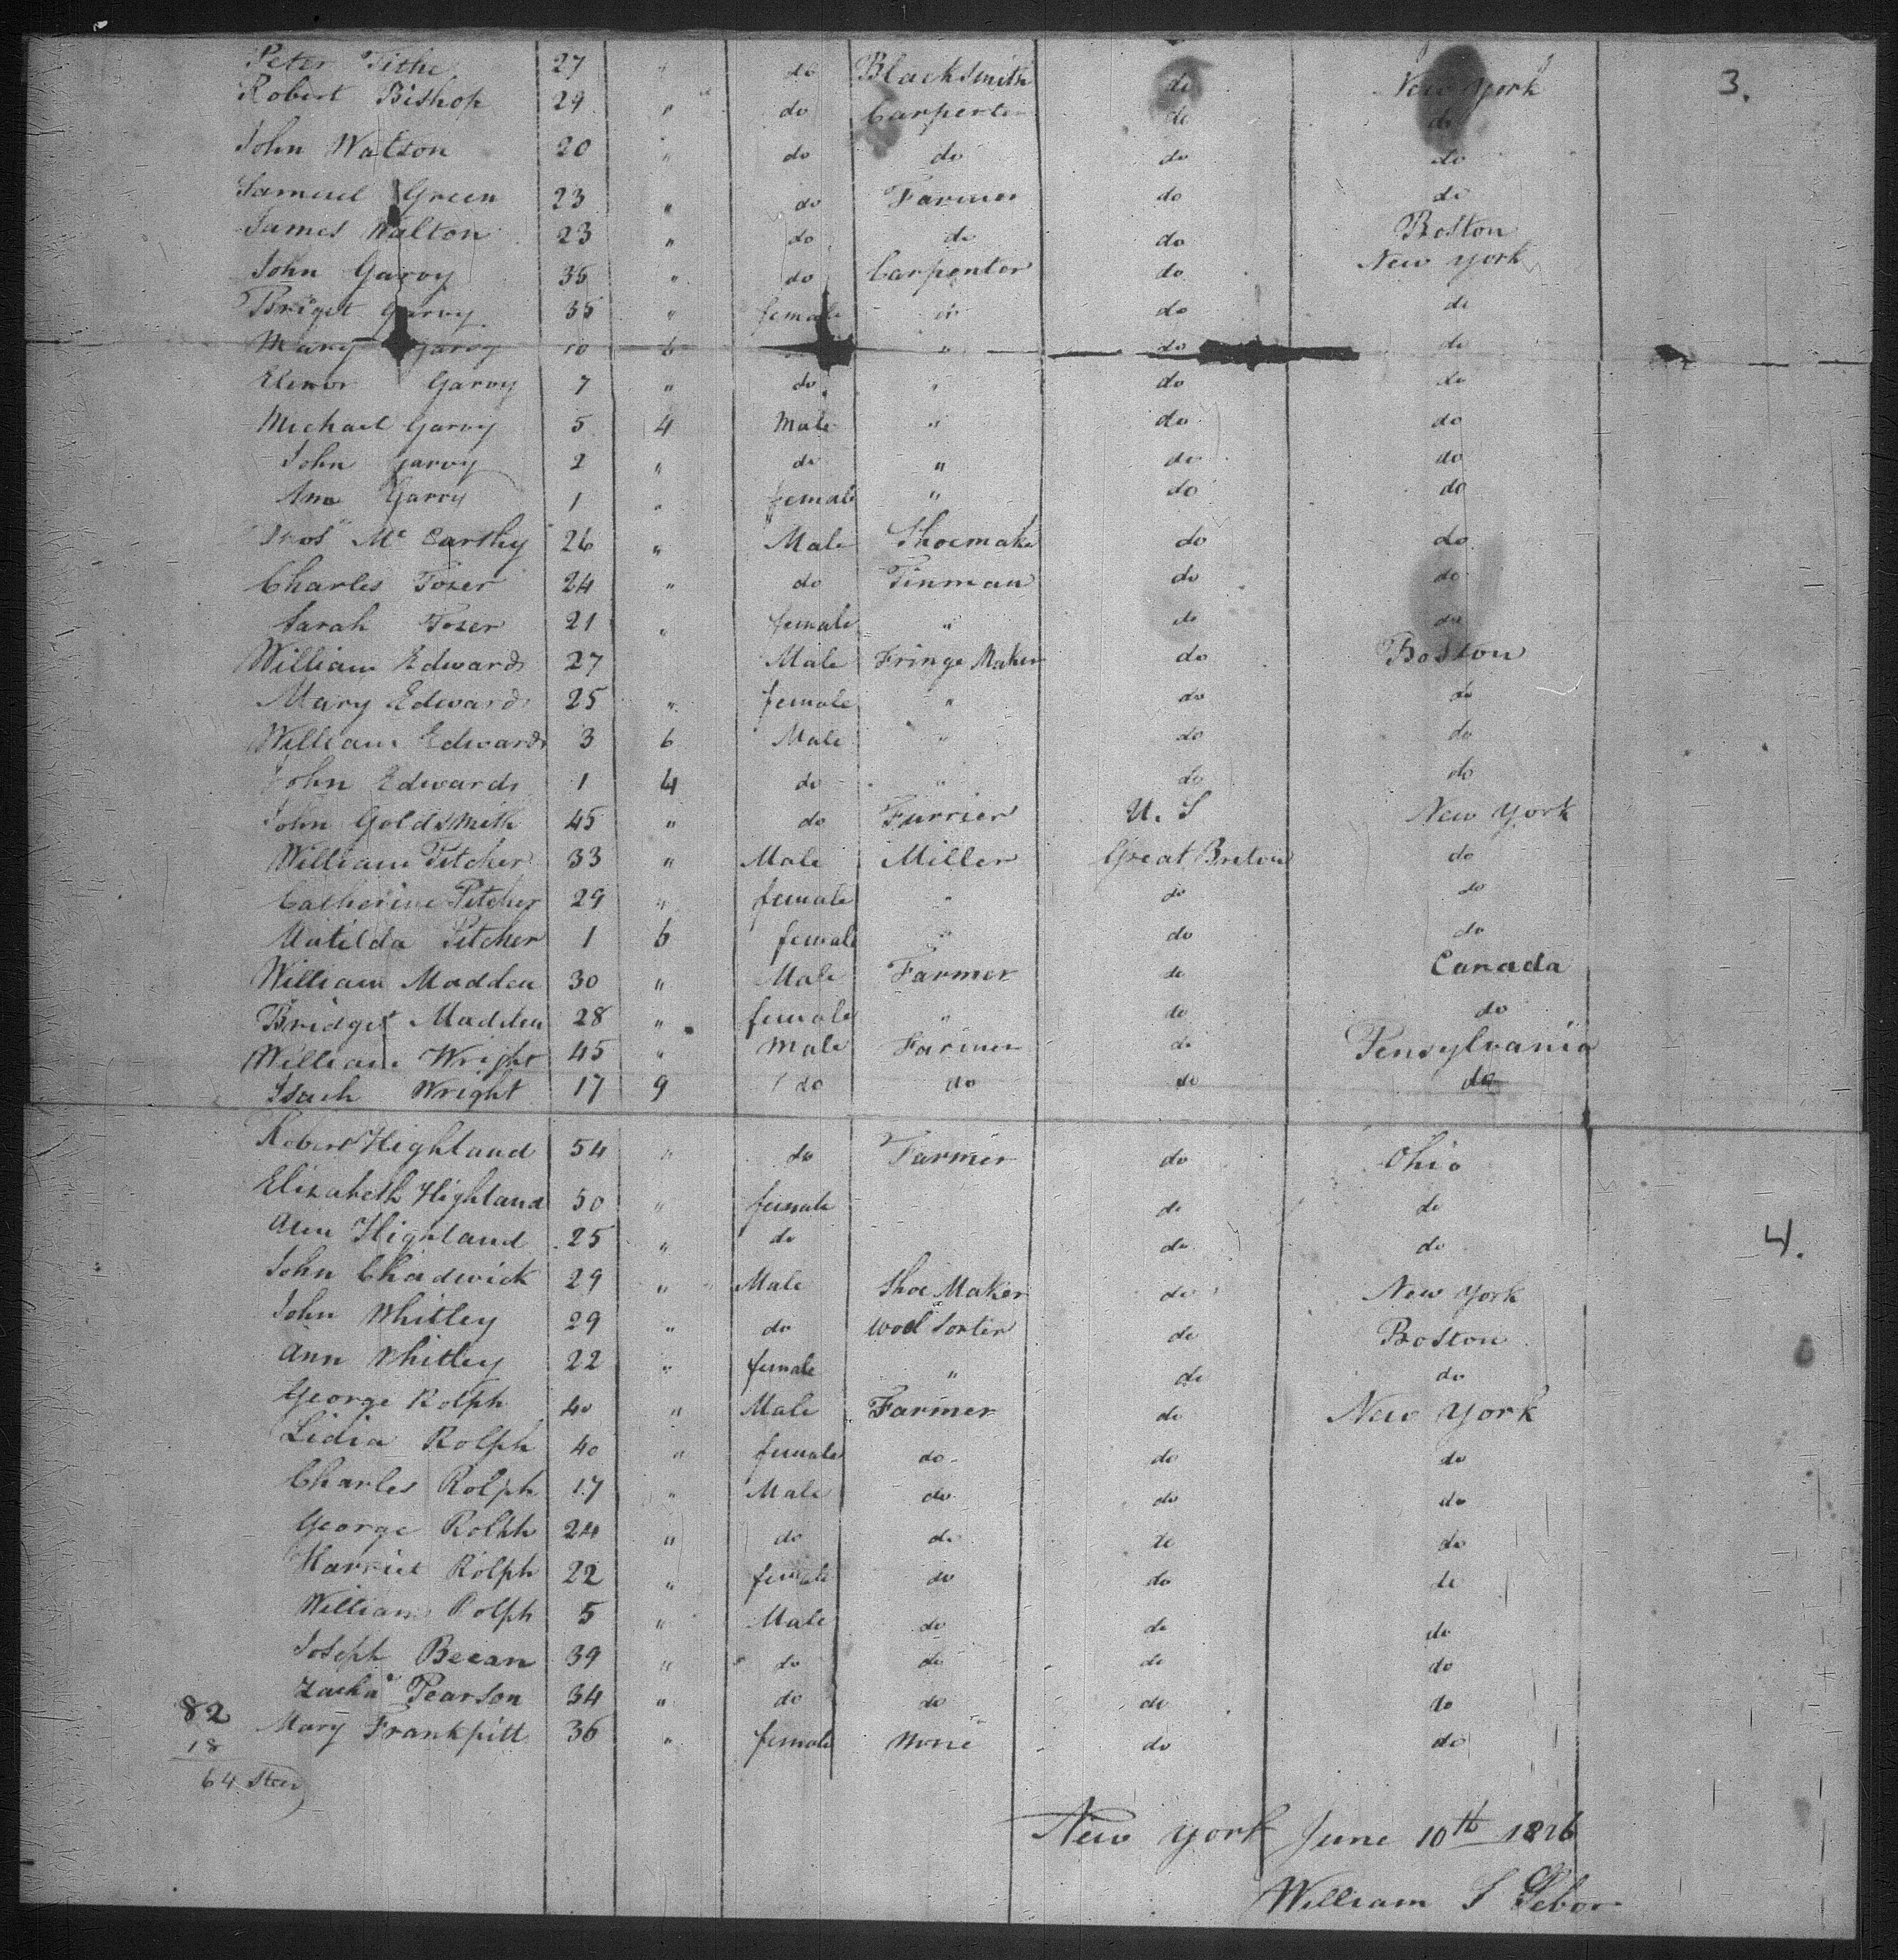 Peter Tithe 27 " do Blacksmith do New York 3.
Robert Bishop 29 " do Carpenter do do
John Watson 20 " do do do do
Samuel Green 23 " do Farmer do do
James Walton 23 " do do do Boston
John Garvy 35 " do Carpenter do New York
Bridget Garvy 35 " female " do do
Mary Garvy 10 6 " do do
Elenor Garvy 7 " do " do do
Michael Garvy 5 4 Male " do do
John Garvy 2 " do " do do
Ann Garvy 1 " female " do do
Thos Mc Carthy 26 " Male Shoemaker do do
Charles Tozer 24 " do Tinman do do
Sarah Tozer 21 " female " do do
William Edwards 27 Male Fringe Maker do Boston
Mary Edwards 25 " female " do do
William Edwards 3 6 Male " do do
John Edwards 1 4 do " do do
John Goldsmith 45 " do Furrier U. S New York
William Pitcher 33 " Male Miller Great Breton do
Catherine Pitcher 29 " female " do do
Matilda Pitcher 1 6 female " do do
William Madden 30 " Male Farmer do Canada
Bridget Madden 28 " female " do do
William Wright 45 " Male Farmer do Pensylvania
Isach Wright 17 9 do do do do
Robert Highland 54 " do Farmer do Ohio
Elizabeth Highland 50 " female do do
Ann Highland 25 " do do do 4.
John Chadwick 29 " Male Shoe Maker do New York
John Whitley 29 " do Wool Sorter do Boston
Ann Whitley 22 " female " do do
George Rolph 40 " Male Farmer do New York
Lidia Rolph 40 " female do do do
Charles Rolph 17 " Male do do do
George Rolph 24 " do do do do
Harriet Rolph 22 " female do do do
William Rolph 5 " Male do do do
Joseph Becan 39 " do do do do
Zacha Pearson 34 " do do do do
82 Mary Frankpitt 36 " female None do do
18
64 Steer
New York June 10th 1826
William S Sebor